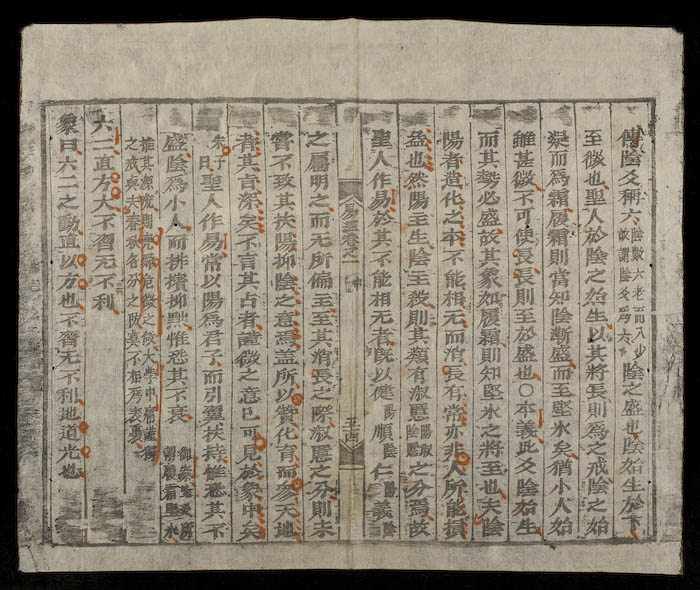 傳陰爻稱六陰數六老而八少故謂陰爻爲六陰之盛也陰始生於下
至微也聖人於陰之始生以其將長則爲之戒陰之始
凝而爲霜履霜則當知陰漸盛而至堅氷矣猶小人始
雖甚微不可使長長則至於盛也○本義此爻陰始生
而其勢必盛故其象如履霜則知堅氷之將至也夫陰
陽者造化之本不能相无而消長有常亦非人所能損
益也然陽主生陰主殺則其類有淑慝陽淑陰慝之分焉故
易經卷之一
聖人作易於其不能相无者旣以健陽順陰仁陽義陰
之屬明之而无所偏主至其消長之際淑慝之分則未
嘗不致其扶陽抑陰之意焉盖所以贊化育而參天地
者其旨深矣不言其占者謹微之意已可見於象中矣
朱子曰聖人作易常以陽爲君子而引翼扶持惟恐其不
盛陰爲小人而排擯抑黜惟恐其不衰履霜堅氷
推其源流則危微之戒大學中庸謹獨
之戒與夫春秋名分之防莫不相爲表裏
六二直方大不習无不利
象曰六二之動直以方也不習无不利地道光也